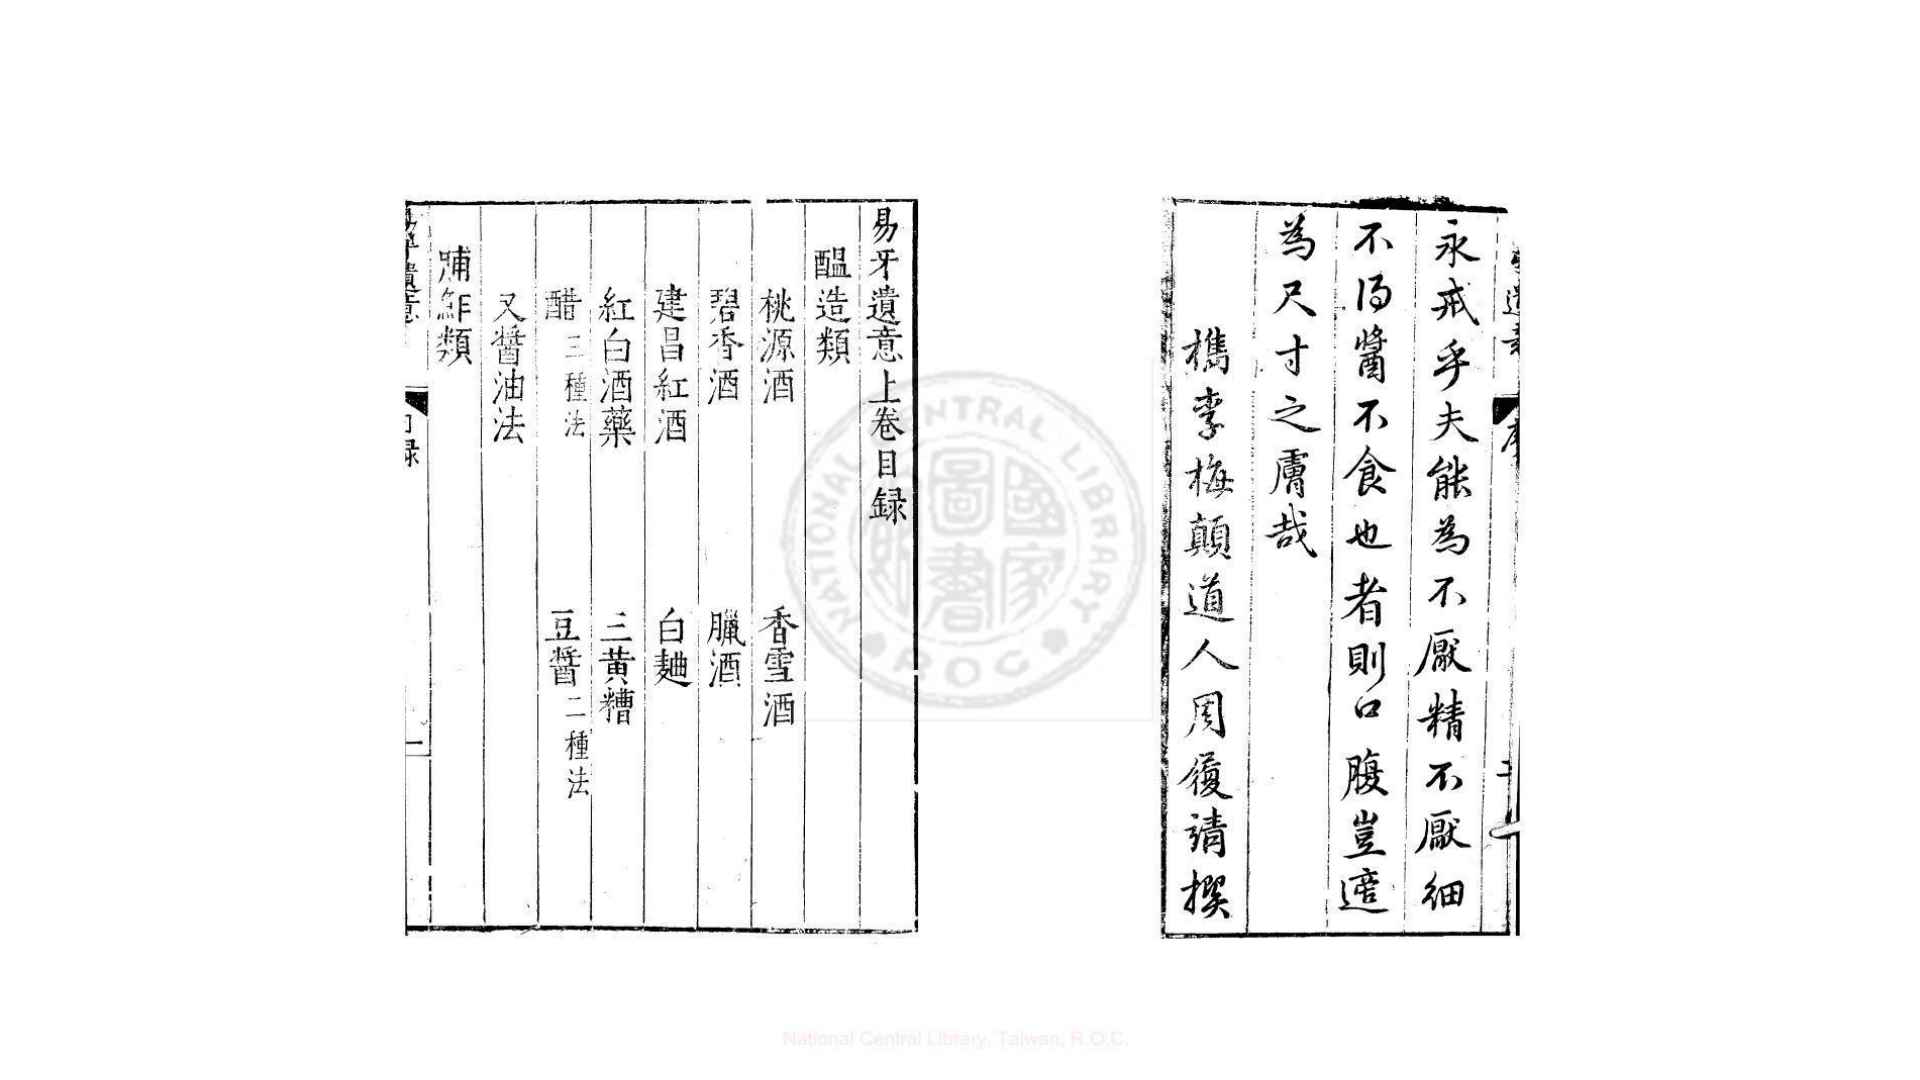 永戒乎夫能為不厭精不厭細
不得醬不食也者則口腹豈遮
為尺寸之膚哉
檇李梅顛道人周履靖撰
易牙遺意上卷目録
醖造類
桃源酒 香雪酒
碧香酒 臘酒
建昌紅酒 白麯
紅白酒藥 三黄糟
醋 三種法 豆醬 二種法
又醬油法
脯鮓類
易牙遺意 目録 一
NATIONAL CENTRAL LIBRARY
ROC
國家圖書館
National Central Library, Taiwan, R.O.C.